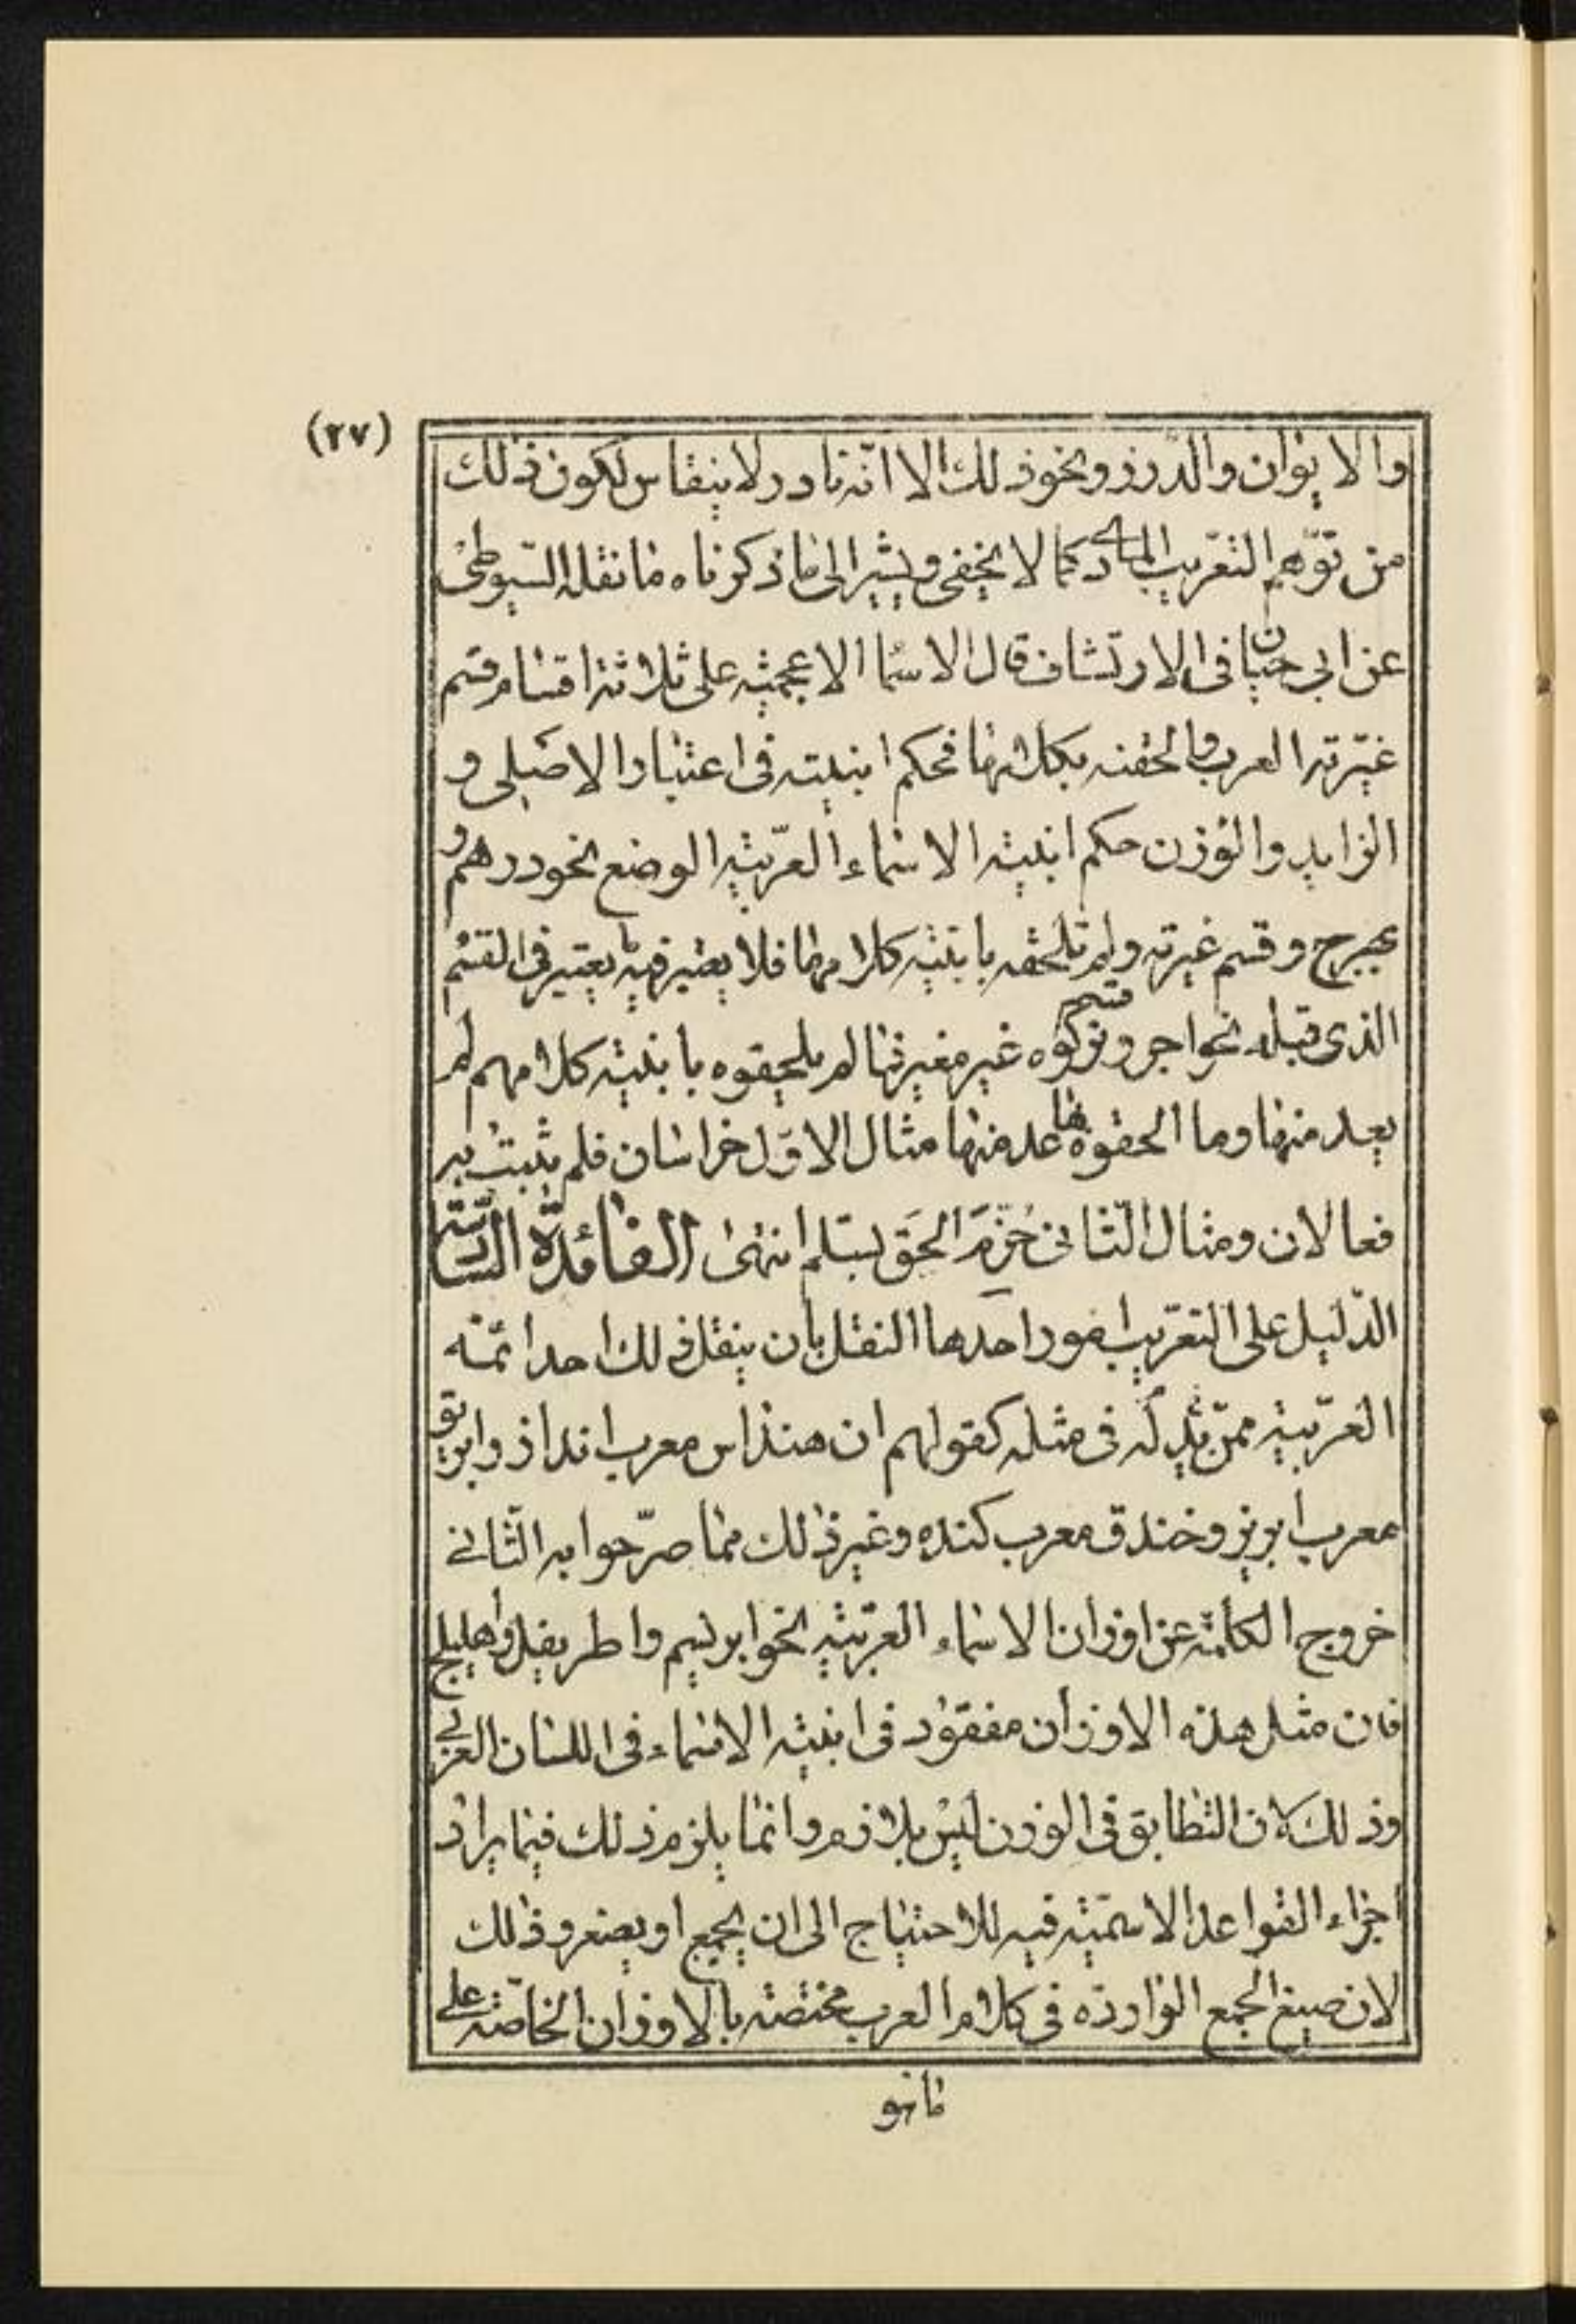 (٢٧)
والايوان والدّرز ونحو ذلك الا انّه نادر ولا ينقاس لكون ذلك
من توهّم التعريب المادى كما لا يخفى ويشير الى ما ذكرناه ما نقله السّيوطى
عن ابى حيان فى الارتشاف قال الاسما الاعجميّه على ثلاثة اقسام قسم
غيّرته العرب والحقته بكلامها فحكم ابنيته فى اعتبار الاصلى و
الزايد والوزن حكم ابنية الاسماء العربيّة الوضع نحو درهم و
بهرج وقسم غيرته ولم تلحقه بابنية كلامها فلا يعتبر فيه ما يعتبر فى القسم
الذى قبله نحو اجر وقسم تركوه غير مغير فما لم يلحقوه بابنية كلامهم لم
يعد منها وما الحقوه بها عد منها مثال الاوّل خراسان فلم يثبت به
فعالان ومثال الثانى خُرَّم الحق بسلّم انتهى الفائدة السّادسة
الدّليل على التعريب امور احدها النقل بان ينقل ذلك احد ائمّه
العربيّه ممن يدرك فى مثله كقولهم ان هنداس معرب انداز وابريق
معرب ابريز وخندق معرب كنده وغير ذلك مما صرّحوا به الثانى
خروج الكلمة عن اوزان الاسماء العربيّة نحو ابريسم واطريفل واهليلج
فان مثل هذه الاوزان مفقود فى ابنية الاسماء فى اللسان العربى
وذلك لان التطابق فى الوزن ليس بلازم وانما يلزم ذلك فيما يراد
اجراء القواعد الاسميّة فيه للاحتياج الى ان يجمع او يصغر وذلك
لان صيغ الجمع الواردة فى كلام العرب مختصة بالاوزان الخاصّة على
ما هو